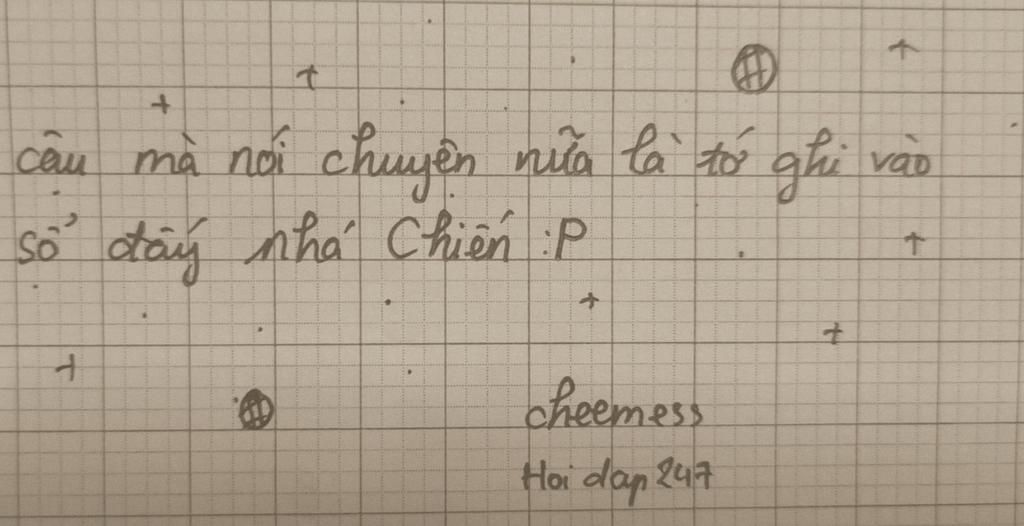 cậu mà nói chuyện nữa là tớ ghi vào
sổ đấy nhá Chiến :P
cheemess
Hoi dap 247